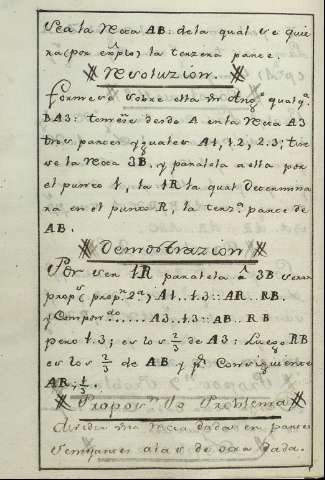 Sea la Recta AB: de la qual se quie
ra (por exmplo) la terzera parte.
Resoluzion.
Formese sobre ella Vn Angº qualqª.
BA3: tomese desde A en la Recta A3
tres partes yguales A1, 1.2, 2.3; tire
se la Recta 3B. y paralela a ella por
el punto 1, la 1R la qual determina
ra en el punto R, la terzª parte de
AB.
Demostrazion
Por ser 1R paralela â 3B seran
propˢ (propⁿ 2ª) A1..1.3::AR..RB.
y Componᵈᵒ......A3..1.3::AB..RB
pero 1.3; es los 2/3 de A3: Luego RB
es los 2/3 de AB y pʳ Consiguiente
AR; 1/3.
Proposⁿ 10 Problema
dividir Vna recta dada en partes
semejantes a las de otra dada.